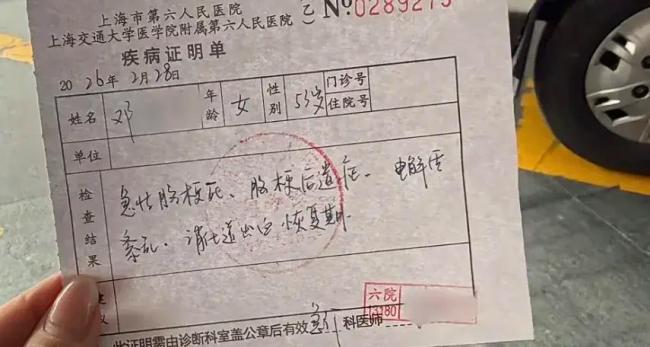 上海市第六人民医院
上海交通大学医学院附属第六人民医院 乙 №0289275
疾病证明单
2026年2月28日
姓名 邓 年龄 女 性别 53岁 门诊号 住院号
单位
检查结果 急性脑梗死、脑梗后遗症、电解质
紊乱、消化道出血恢复期
六院
3180
此证明需由诊断科室盖公章后有效 科医师